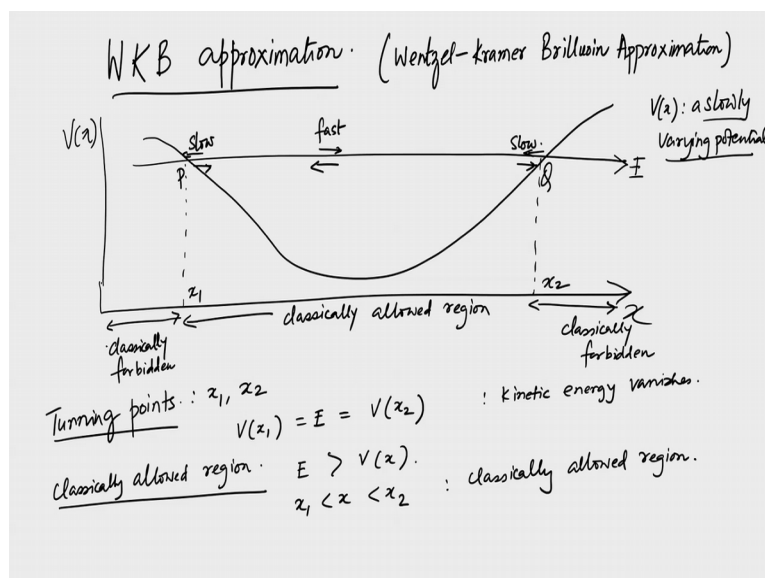 WKB approximation. (Wentzel-Kramer Brilluoin Approximation)
V(x): a slowly
varying potential
V(x)
slow
fast
slow.
E
P
Q
x1
x2
x
classically allowed region
classically
forbidden
classically
forbidden
Turning points : x1, x2
V(x1) = E = V(x2) : Kinetic energy vanishes.
Classically allowed region. E > V(x).
x1 < x < x2 : classically allowed region.